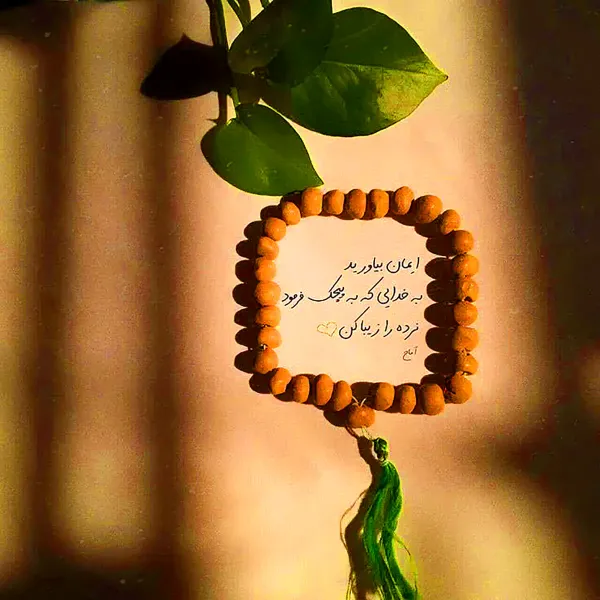 ایمان بیاورید
به خدایی که به پیچک فرمود
نرده را زیبا کن
آماج